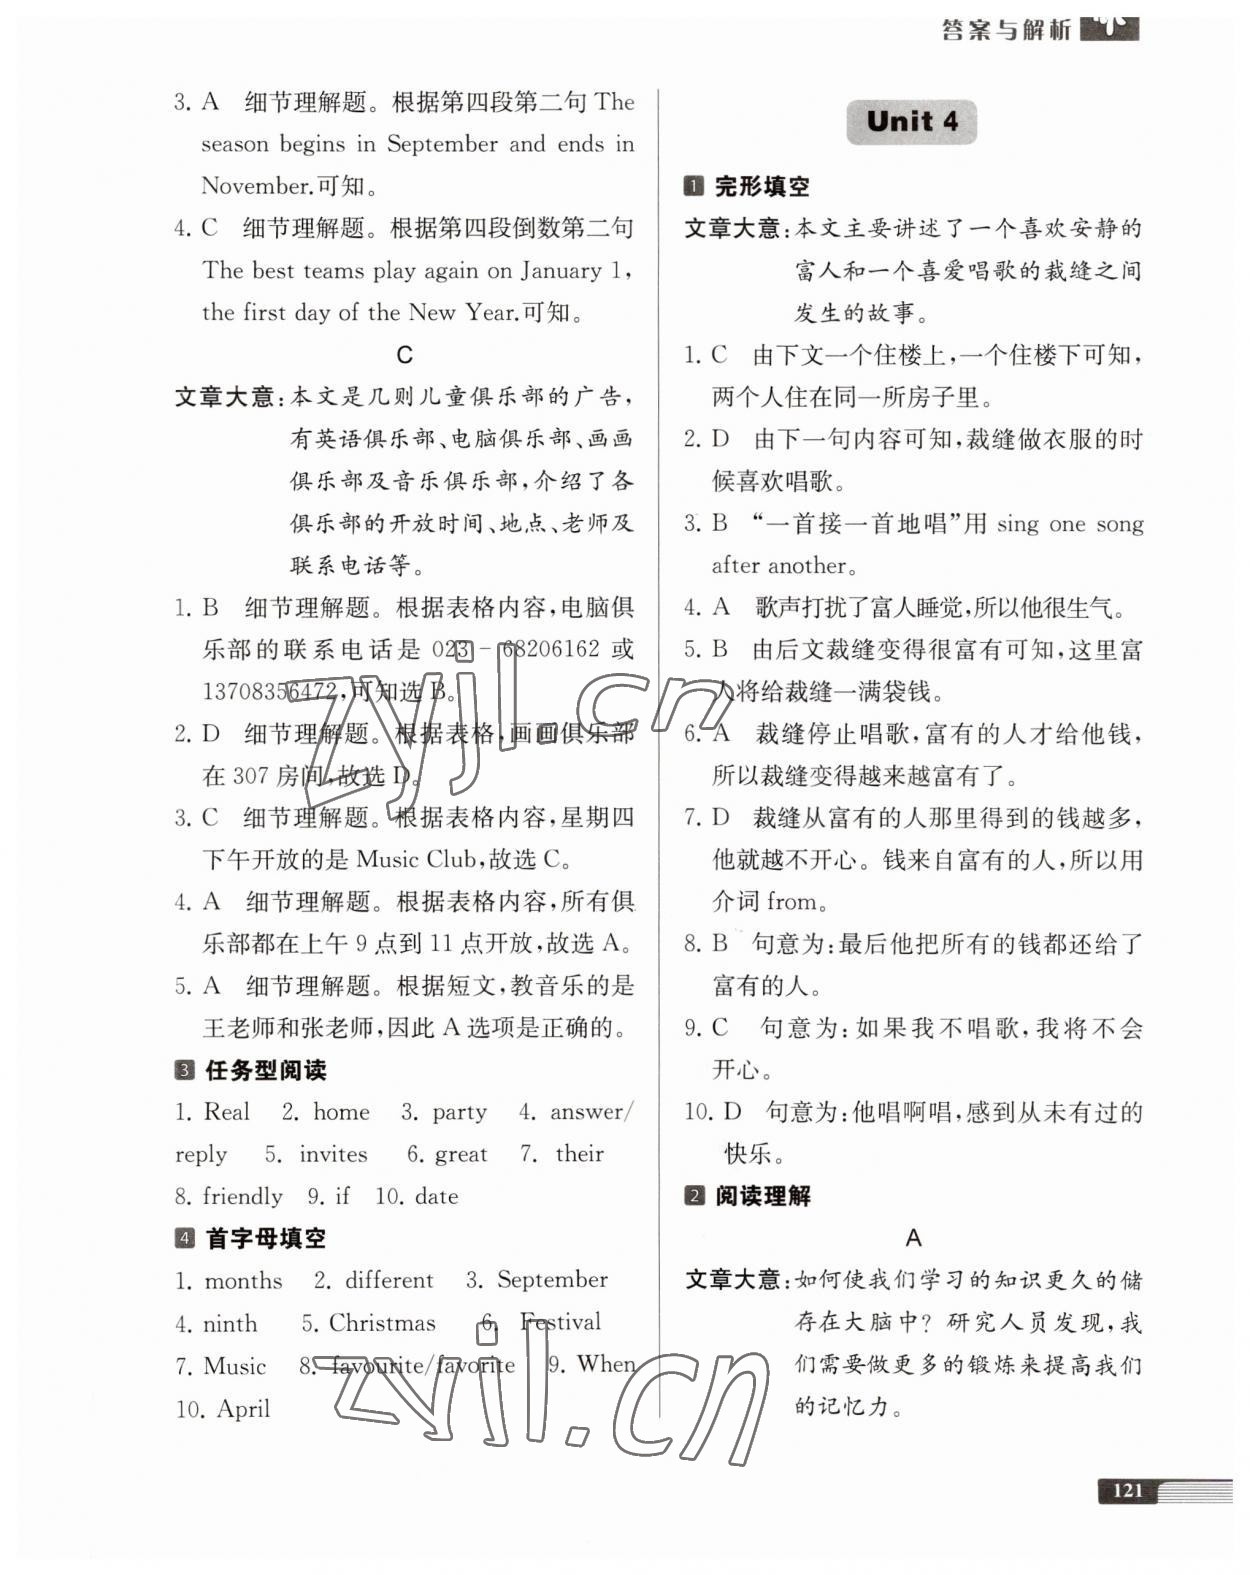 答案与解析
3. A 细节理解题。根据第四段第二句 The
season begins in September and ends in
November.可知。
4. C 细节理解题。根据第四段倒数第二句
The best teams play again on January 1,
the first day of the New Year.可知。
C
文章大意:本文是几则儿童俱乐部的广告,
有英语俱乐部、电脑俱乐部、画画
俱乐部及音乐俱乐部,介绍了各
俱乐部的开放时间、地点、老师及
联系电话等。
1. B 细节理解题。根据表格内容,电脑俱
乐部的联系电话是 023-68206162 或
13708356472,可知选 B。
2. D 细节理解题。根据表格,画画俱乐部
在 307 房间,故选 D。
3. C 细节理解题。根据表格内容,星期四
下午开放的是 Music Club,故选 C。
4. A 细节理解题。根据表格内容,所有俱
乐部都在上午 9 点到 11 点开放,故选 A。
5. A 细节理解题。根据短文,教音乐的是
王老师和张老师,因此 A 选项是正确的。
3 任务型阅读
1. Real 2. home 3. party 4. answer/
reply 5. invites 6. great 7. their
8. friendly 9. if 10. date
4 首字母填空
1. months 2. different 3. September
4. ninth 5. Christmas 6. Festival
7. Music 8. favourite/favorite 9. When
10. April
Unit 4
1 完形填空
文章大意:本文主要讲述了一个喜欢安静的
富人和一个喜爱唱歌的裁缝之间
发生的故事。
1. C 由下文一个住楼上,一个住楼下可知,
两个人住在同一所房子里。
2. D 由下一句内容可知,裁缝做衣服的时
候喜欢唱歌。
3. B “一首接一首地唱”用 sing one song
after another。
4. A 歌声打扰了富人睡觉,所以他很生气。
5. B 由后文裁缝变得很富有可知,这里富
人将给裁缝一满袋钱。
6. A 裁缝停止唱歌,富有的人才给他钱,
所以裁缝变得越来越富有了。
7. D 裁缝从富有的人那里得到的钱越多,
他就越不开心。钱来自富有的人,所以用
介词 from。
8. B 句意为:最后他把所有的钱都还给了
富有的人。
9. C 句意为:如果我不唱歌,我将不会
开心。
10. D 句意为:他唱啊唱,感到从未有过的
快乐。
2 阅读理解
A
文章大意:如何使我们学习的知识更久的储
存在大脑中?研究人员发现,我
们需要做更多的锻炼来提高我们
的记忆力。
zyjl.cn
zyjl.cn
121